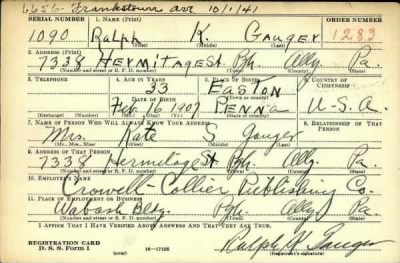 6656 Frankstown ave 10/1/41
SERIAL NUMBER 1. NAME (Print) ORDER NUMBER
1090 Ralph K. Gauger 1283
(First) (Middle) (Last)
2. ADDRESS (Print)
7338 Hermitage St Pgh Ally. Pa.
(Number and street or R. F. D. number) (Town) (County) (State)
3. TELEPHONE 4. AGE IN YEARS 5. PLACE OF BIRTH 6. COUNTRY OF CITIZENSHIP
33 Easton
DATE OF BIRTH
Feb 16 1907 Penna U.S.A.
(Mo.) (Day) (Yr.) (State or country)
7. NAME OF PERSON WHO WILL ALWAYS KNOW YOUR ADDRESS 8. RELATIONSHIP OF THAT PERSON
Mrs. Kate S Gauger
(Mr., Mrs., Miss) (First) (Middle) (Last)
9. ADDRESS OF THAT PERSON
7338 Hermitage St Pgh. Ally. Pa.
(Number and street or R. F. D. number) (Town) (County) (State)
10. EMPLOYER'S NAME
Crowell-Collier Publishing Co.
11. PLACE OF EMPLOYMENT OR BUSINESS
Wabash Bldg. Pgh. Ally. Pa.
(Number and street or R. F. D. number) (Town) (County) (State)
I AFFIRM THAT I HAVE VERIFIED ABOVE ANSWERS AND THAT THEY ARE TRUE.
REGISTRATION CARD
D. S. S. Form 1 (over) 16-17105 Ralph K Gauger
(Registrant's signature)